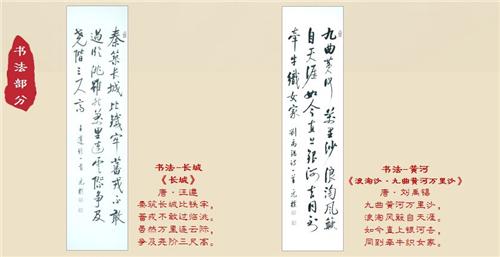 书法部分
秦築长城比鐵牢蕃戎不敢
過临洮雖然萬里連雲際争及
尧階三尺高
书法--长城
《长城》
唐·汪遵
秦筑长城比铁牢，
蕃戎不敢过临洮。
虽然万里连云际，
争及尧阶三尺高。
九曲黄河萬里沙浪淘風簸
自天涯如今直上银河去同到
牵牛織女家
书法--黄河
《浪淘沙·九曲黄河万里沙》
唐·刘禹锡
九曲黄河万里沙，
浪淘风簸自天涯。
如今直上银河去，
同到牵牛织女家。